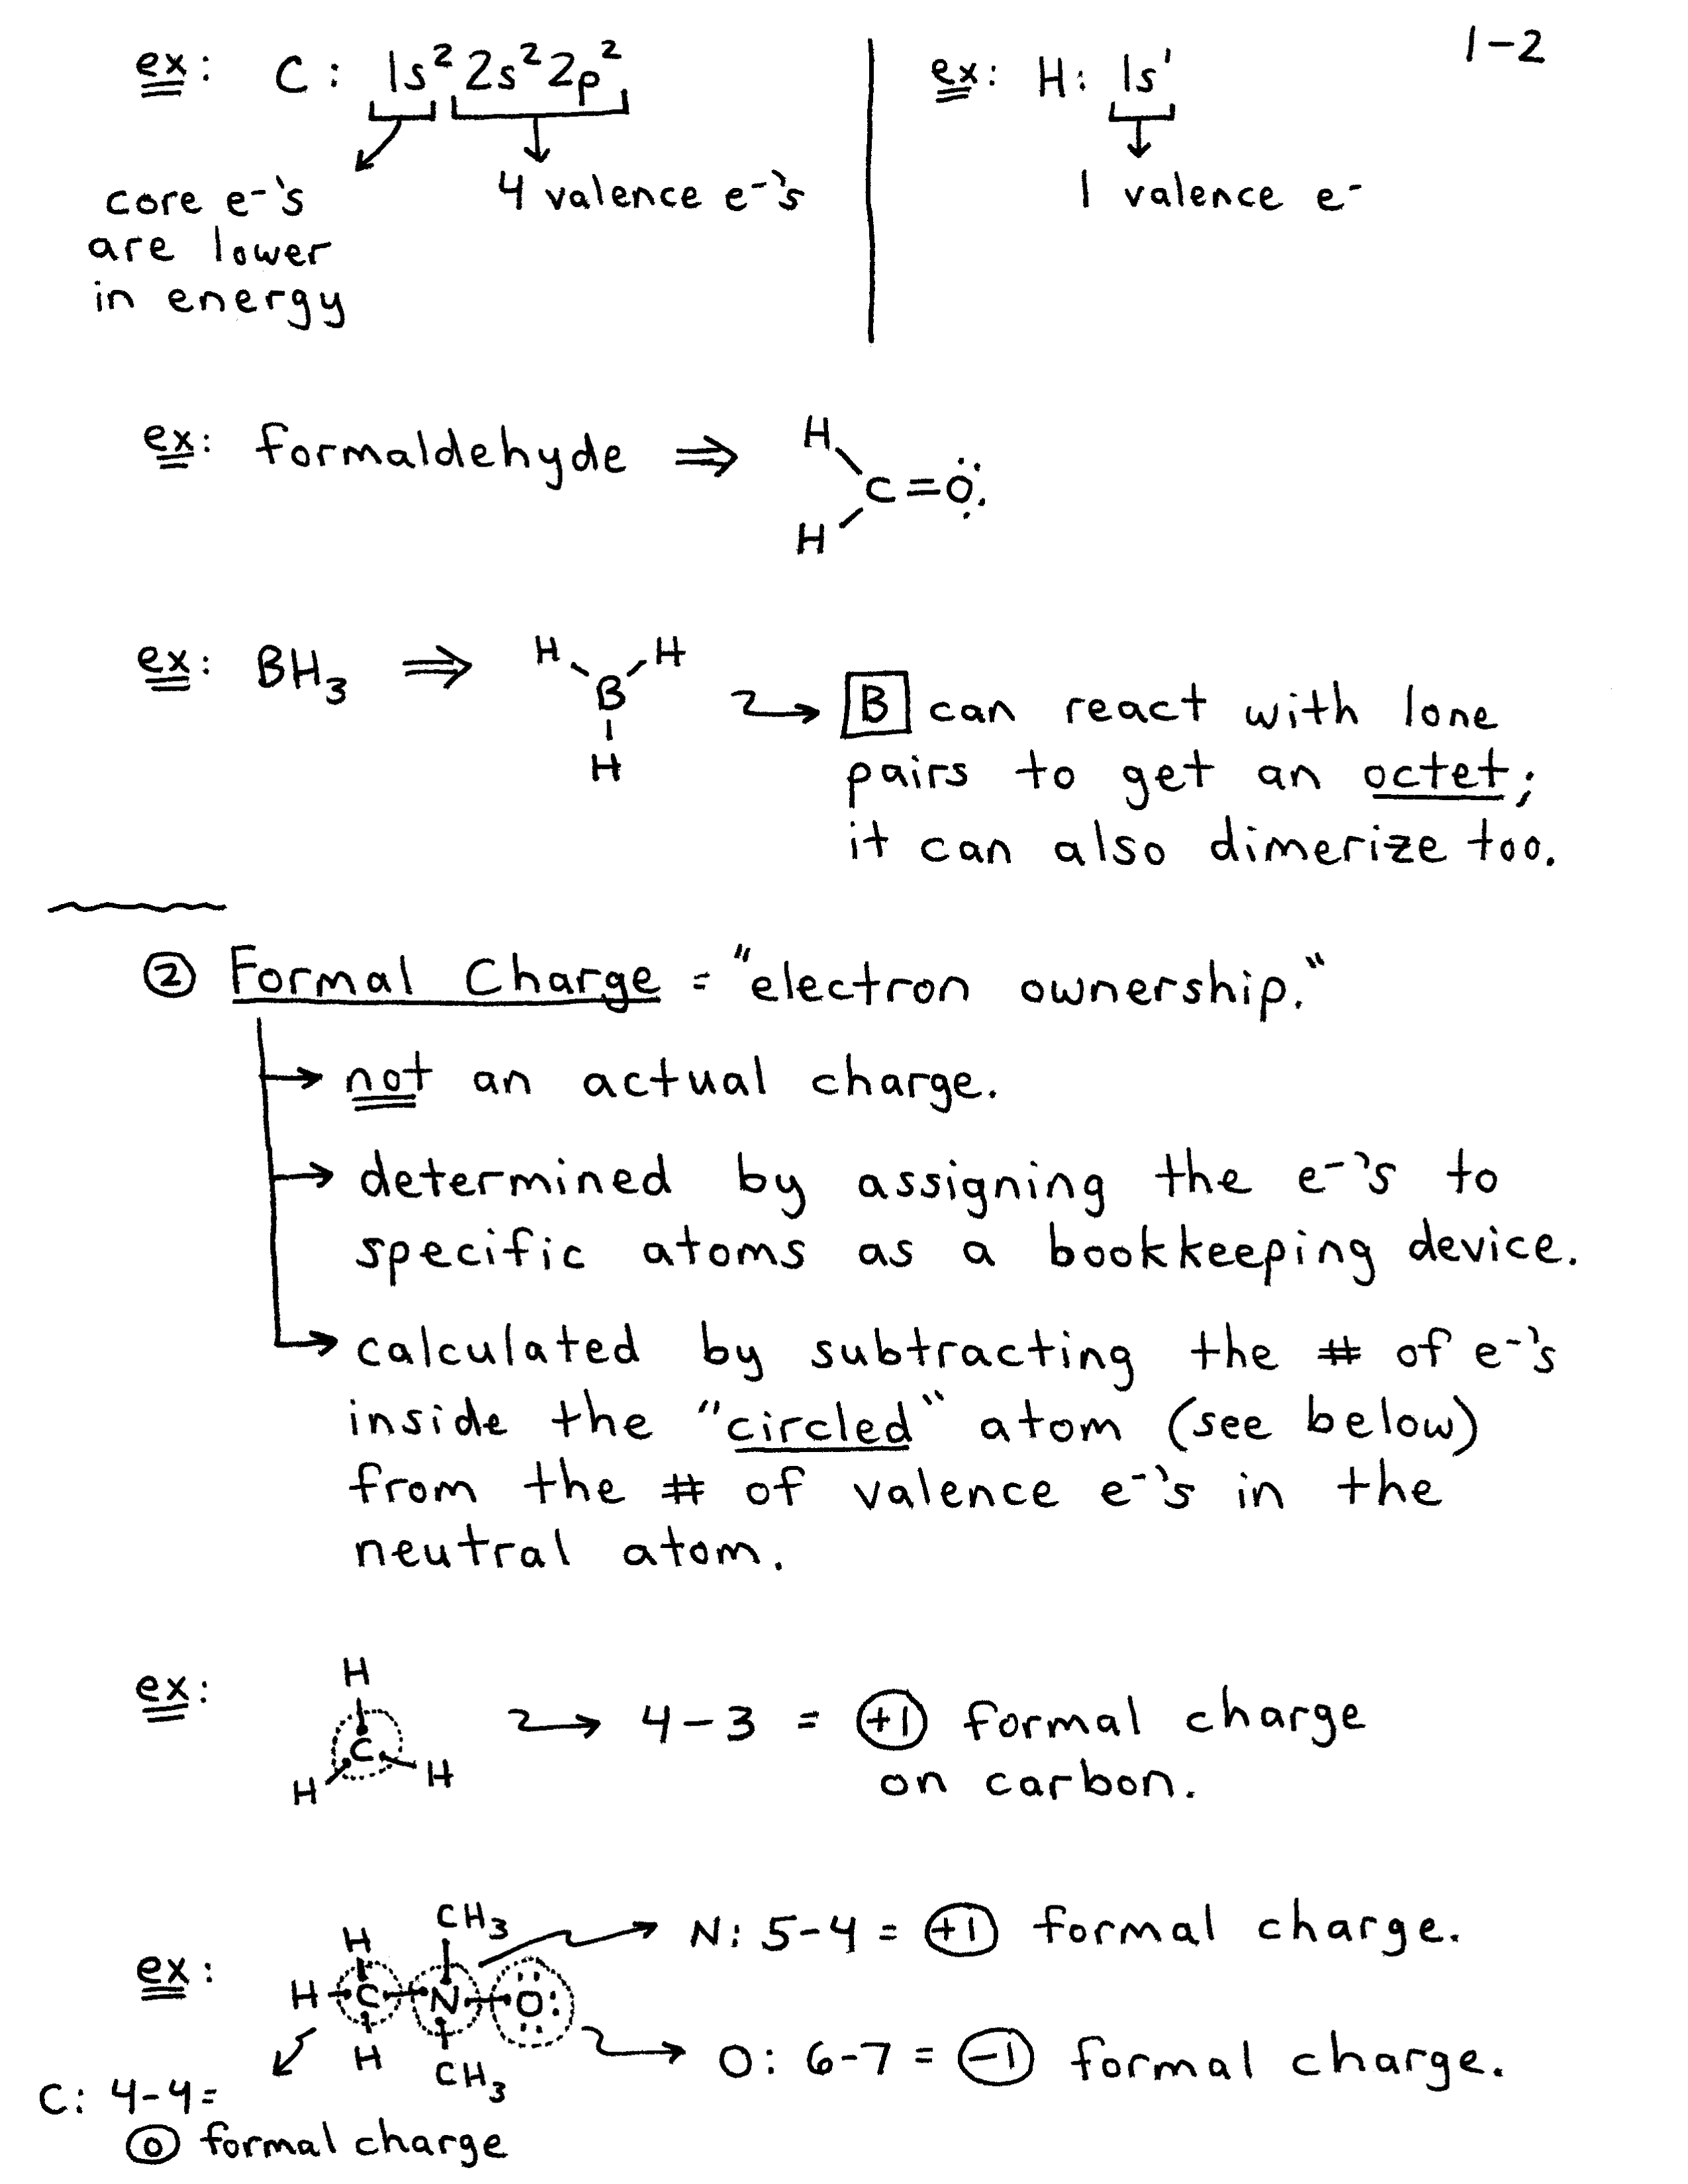 1-2
ex: C: 1s² 2s² 2p²
core e⁻'s
are lower
in energy
4 valence e⁻'s
ex: H: 1s¹
1 valence e⁻
ex: formaldehyde ⇒
H
C=O
H
ex: BH₃ ⇒
H H
B
H
B can react with lone
pairs to get an octet;
it can also dimerize too.
② Formal Charge = "electron ownership."
→ not an actual charge.
→ determined by assigning the e⁻'s to
specific atoms as a bookkeeping device.
→ calculated by subtracting the # of e⁻'s
inside the "circled" atom (see below)
from the # of valence e⁻'s in the
neutral atom.
ex:
H
C
H H
→ 4-3 = +1 formal charge
on carbon.
ex:
H CH₃
H C N O
H CH₃
N: 5-4 = +1 formal charge.
O: 6-7 = -1 formal charge.
C: 4-4=
0 formal charge